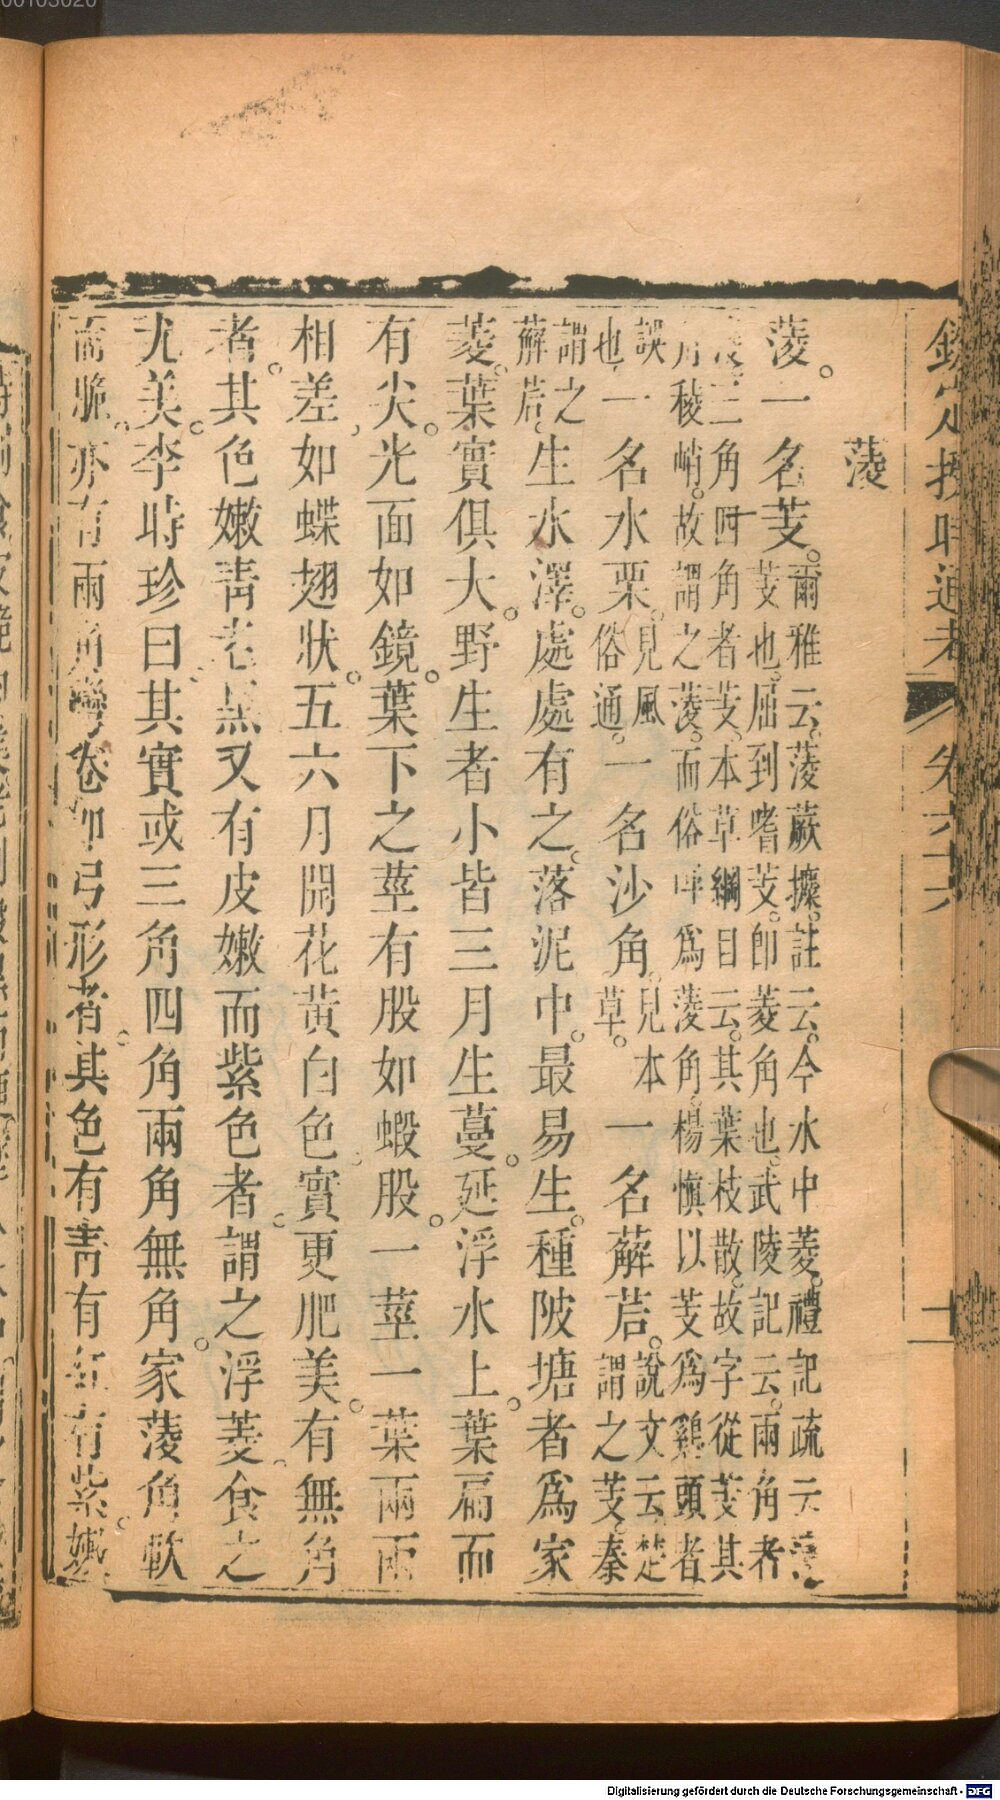 00103020
欽定授時通考 卷六十六
菱
菱一名芰爾雅云菱蕨攗註云今水中菱禮記疏云菱
芰也屈到嗜芰卽菱角也武陵記云兩角者
菱三角四角者芰本草綱目云其葉枝散故字從芰其
角稜峭故謂之菱而俗呼爲菱角楊愼以芰爲鷄頭者
誤也一名水栗見風俗通一名沙角見本草一名薢茩說文云楚謂之芰秦
謂之薢茩生水澤處處有之落泥中最易生種陂塘者爲家
菱葉實俱大野生者小皆三月生蔓延浮水上葉扁而
有尖光面如鏡葉下之莖有股如蝦股一莖一葉兩兩
相差如蝶翅狀五六月開花黃白色實更肥美有無角
者其色嫩靑老黑又有皮嫩而紫色者謂之浮菱食之
尤美李時珍曰其實或三角四角兩角無角家菱角軟
而脆亦有兩角彎卷如弓形者其色有靑有紅有紫嫩
Digitalisierung gefördert durch die Deutsche Forschungsgemeinschaft - DFG